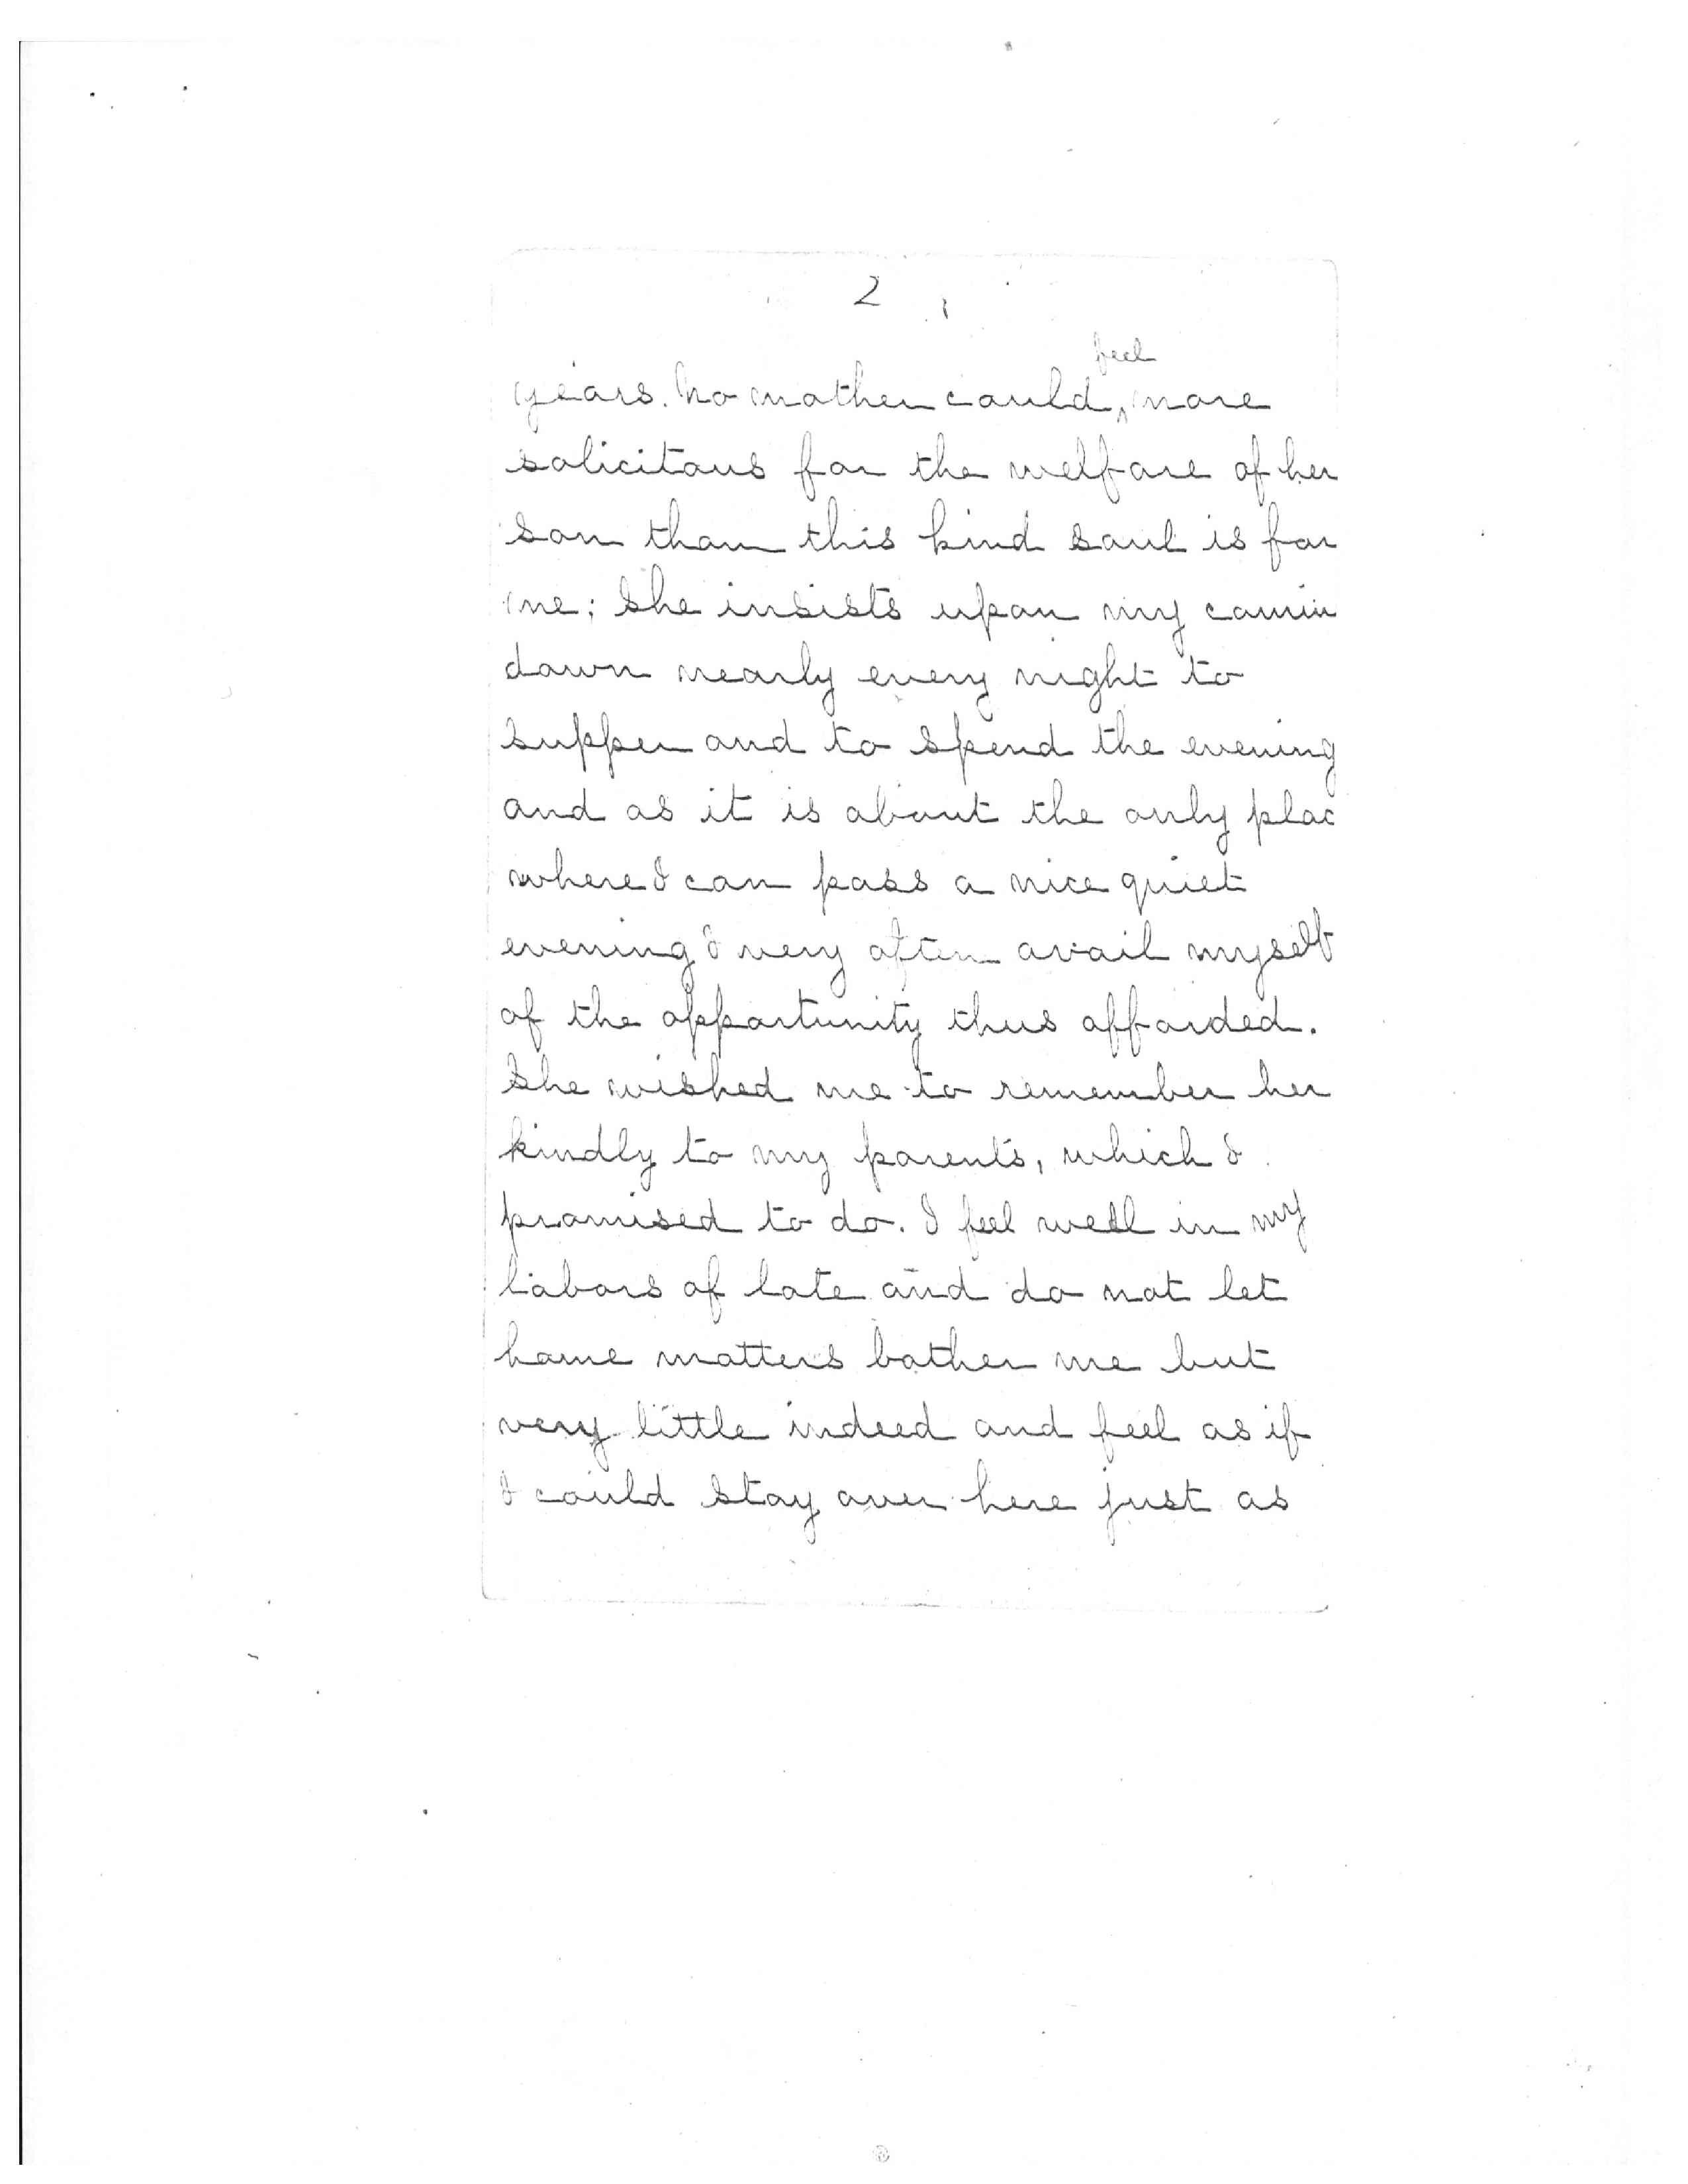 2
feel
years. No mother could ^ more
solicitous for the welfare of her
son than this kind soul is for
me; She insists upon my comin
down nearly every night to
supper and to spend the evening
and as it is about the only plac
where I can pass a nice quiet
evening I very often avail myself
of the opportunity thus afforded.
She wished me to remember her
kindly to my parents, which I
promised to do. I feel well in my
labors of late and do not let
home matters bother me but
very little indeed and feel as if
I could stay over here just as